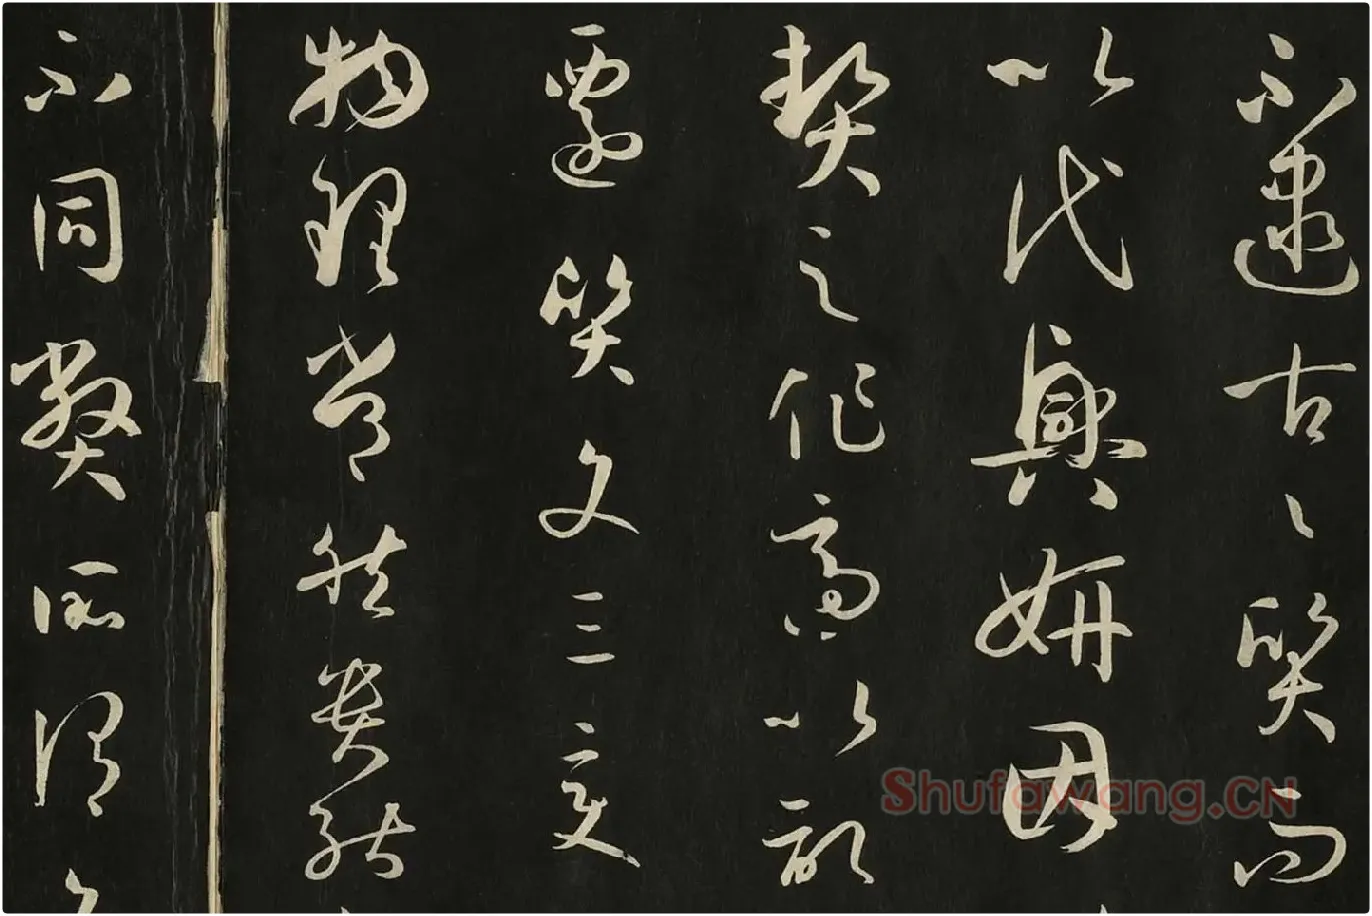 不逮古〻質而
以代興妍因
契之作適以記
遷質文三變
物理常然貴能
不同弊所謂
Shufawang.CN